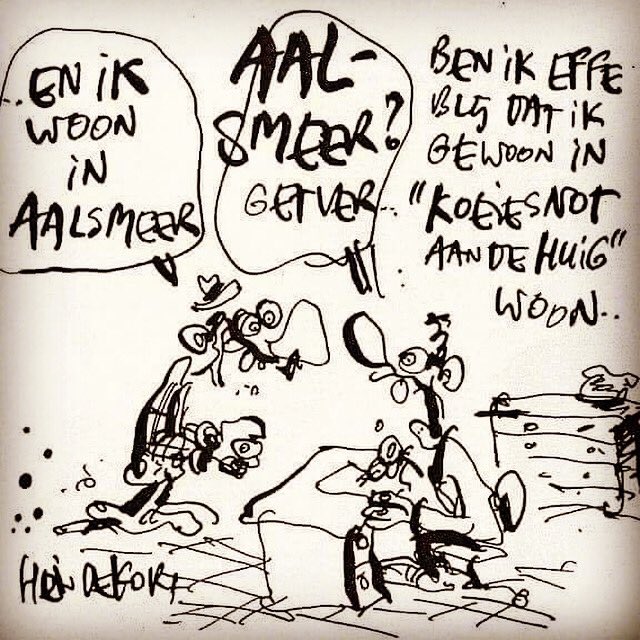 ..EN iK
WOON
iN
AALSMEER
AAL-
SMEER?
GETVER..
BEN iK EFFE
BLIJ DAT iK
GEWOON iN
"KOEiESNOT
AAN DE HUiG"
WOON..
HEiN DE KORT